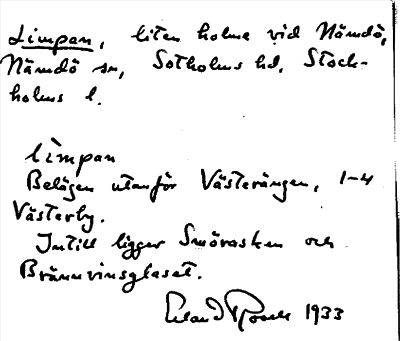 Limpan, liten holme vid Nämdö,
Nämdö sn, Sotholms hd, Stock-
holms l.
lìmpan
Belägen utanför Västerängen, 1-4
Västerby.
Intill ligger Smörasken och
Brännvinsglaset.
Erland Rosell 1933